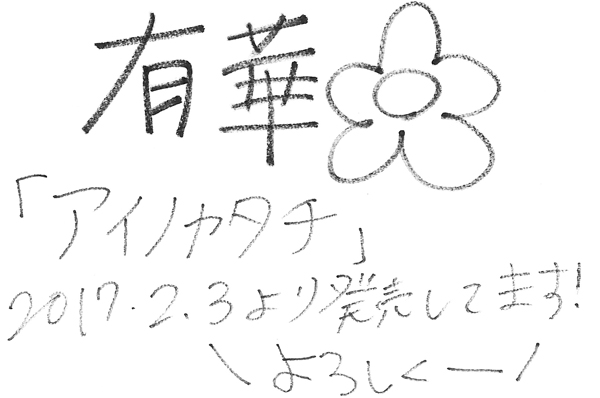 有華
「アイノカタチ」
2017.2.3より発売してます!
\よろしくー/